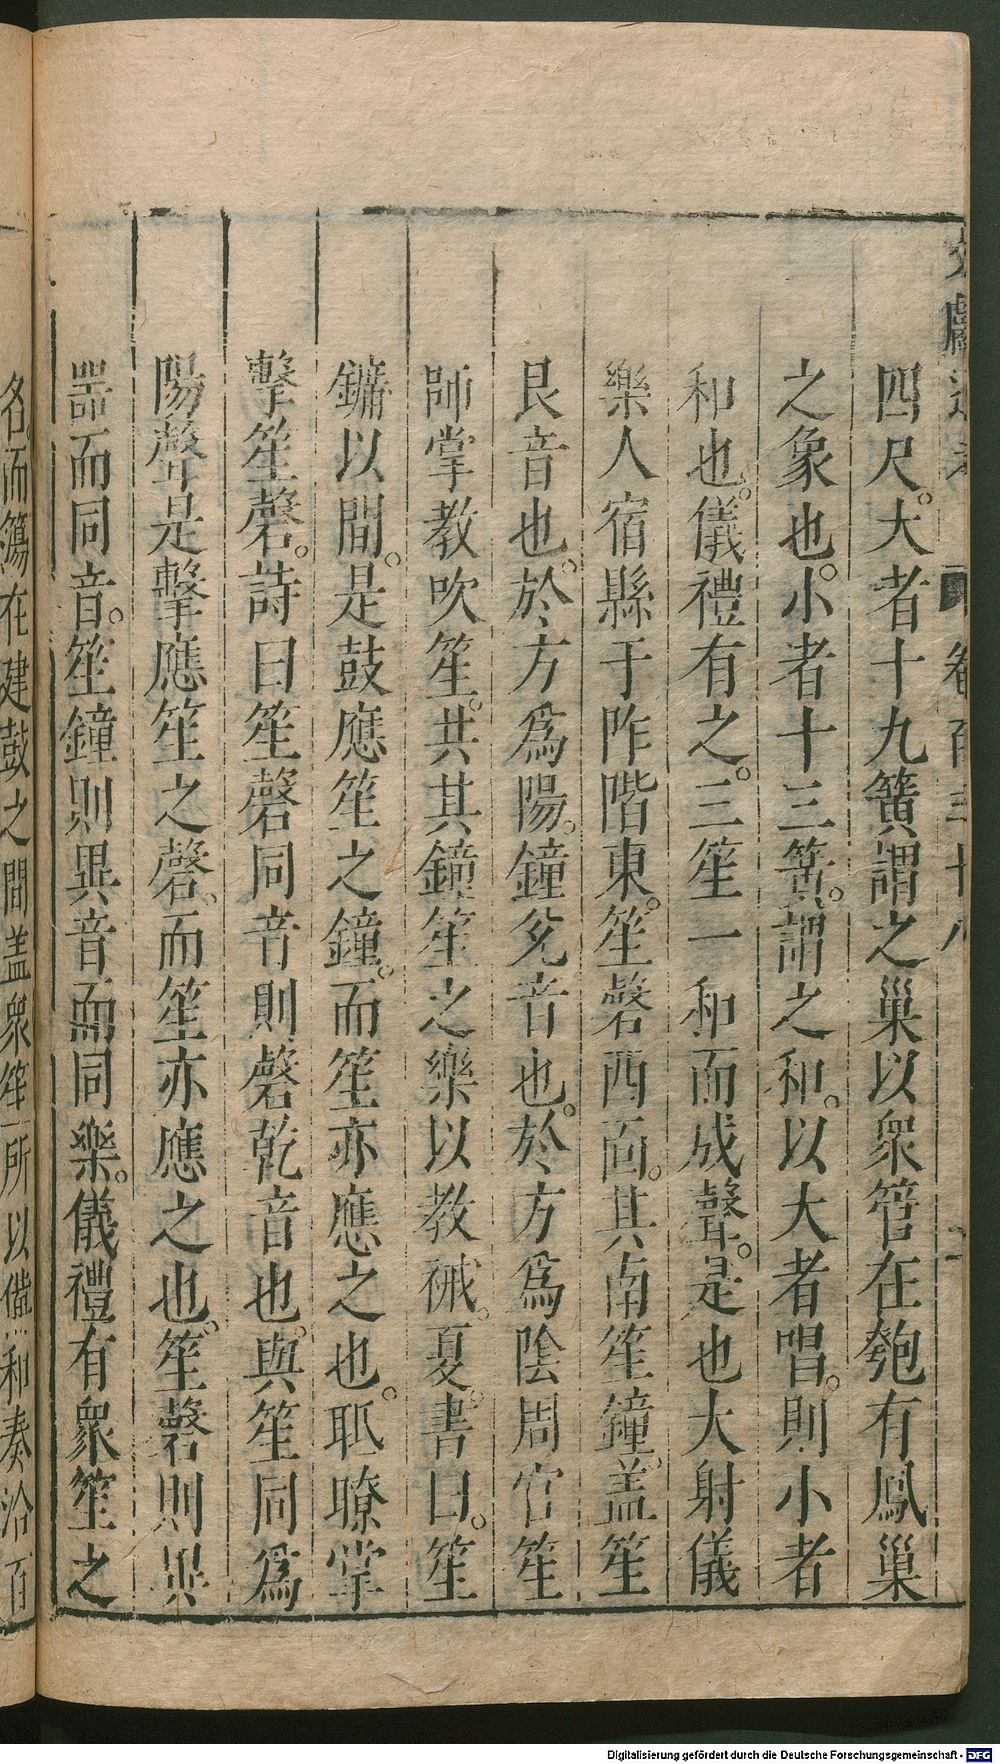 文獻通考 卷百三十八 二
四尺。大者十九簧謂之巢以衆管在匏有鳳巢
之象也。小者十三簧。謂之和。以大者唱。則小者
和也。儀禮有之。三笙一和而成聲。是也大射儀
樂人宿縣于阼階東。笙磬西面。其南笙鐘。盖笙
艮音也。於方爲陽。鐘兊音也。於方爲陰周官笙
師掌教吹笙。共其鐘笙之樂以教祴。夏。書曰。笙
鏞以間。是鼓應笙之鐘。而笙亦應之也。眂瞭掌
擊笙磬。詩曰笙磬同音則磬乾音也。與笙同爲
陽聲是擊應笙之磬。而笙亦應之也。笙磬則異
噐而同音。笙鐘則異音而同樂。儀禮有衆笙之
名。而簜在建鼓之間盖衆笙所以備和奏洽百
Digitalisierung gefördert durch die Deutsche Forschungsgemeinschaft - DFG